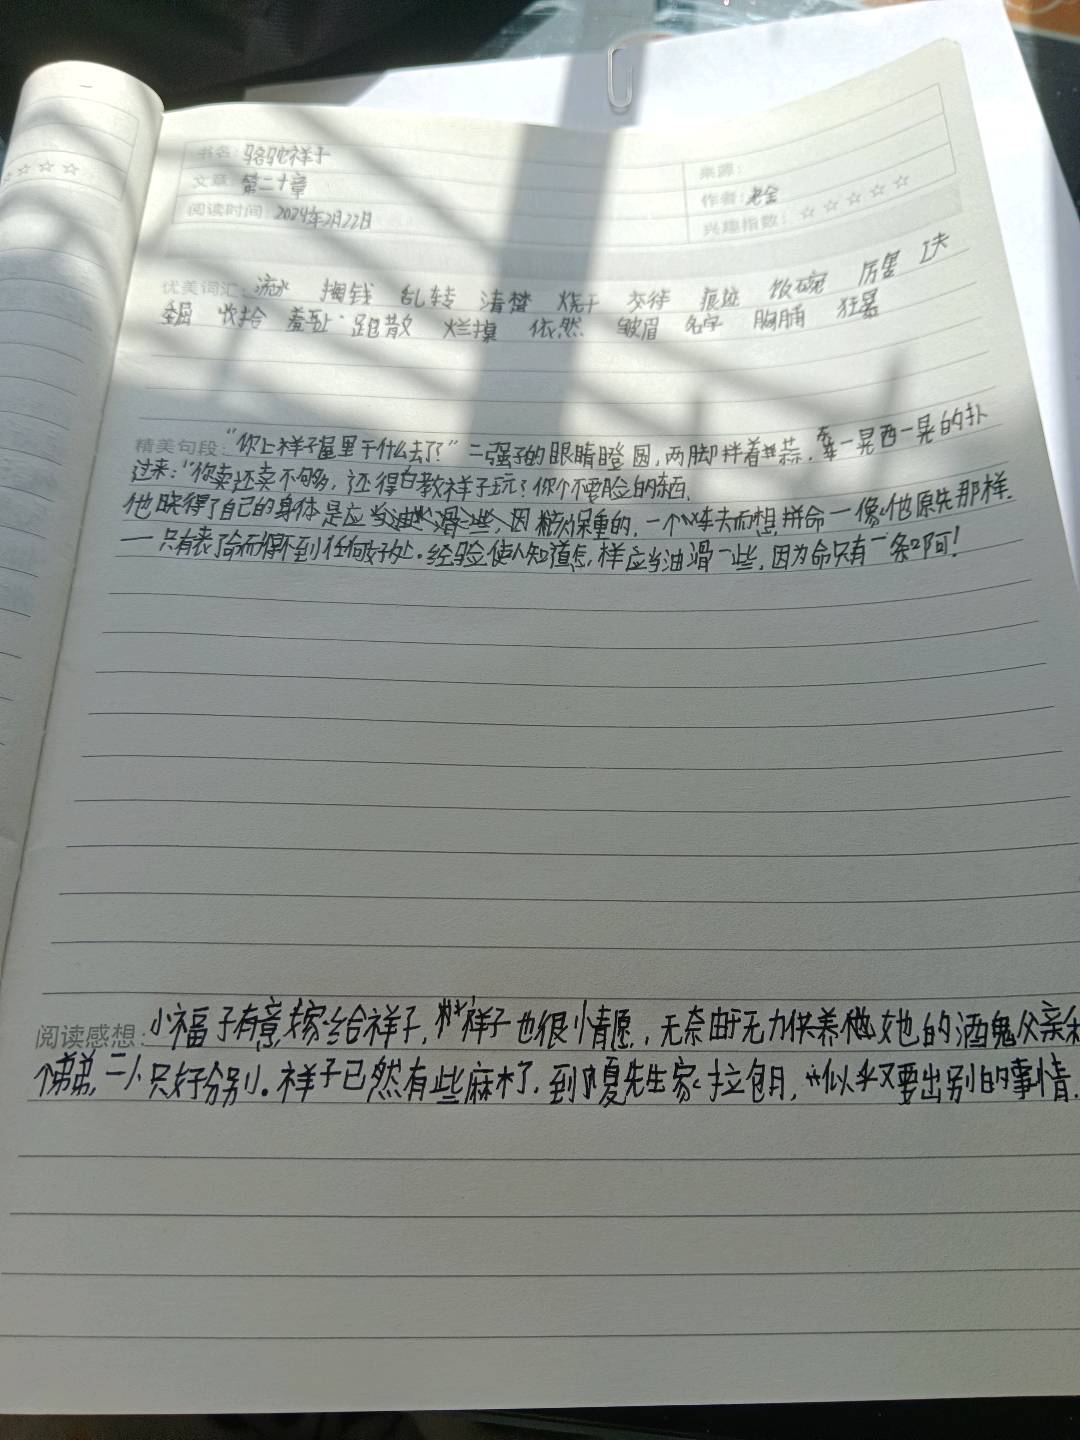 书名：骆驼祥子
来源：
文章：第二十章
作者：老舍
阅读时间：2024年2月22日
兴趣指数：☆☆☆☆☆
优美词汇：流水 掏钱 乱转 清楚 烧干 交待 痕迹 饭碗 厉害 工夫
收拾 羞耻 跑散 烂摸 依然 皱眉 名字 胸脯 狂暴
精美句段："你上祥子屋里干什么去了？"二强子的眼睛瞪圆，两脚拌着蒜，东一晃西一晃的扑
过来："你卖还卖不够，还得白教祥子玩？你个不要脸的东西
他晓得了自己的身体是应当 保重的，一个 车夫而想拼命一像他原先那样
一只有丧了命而得不到任何好处。经验使人知道怎样应当油滑一些，因为命只有一条啊！
阅读感想：小福子有意嫁给祥子，祥子也很情愿，无奈由于无力供养她的酒鬼父亲和
个弟弟，二人只好分别。祥子已然有些麻木了，到夏先生家拉包月，似乎又要出别的事情。